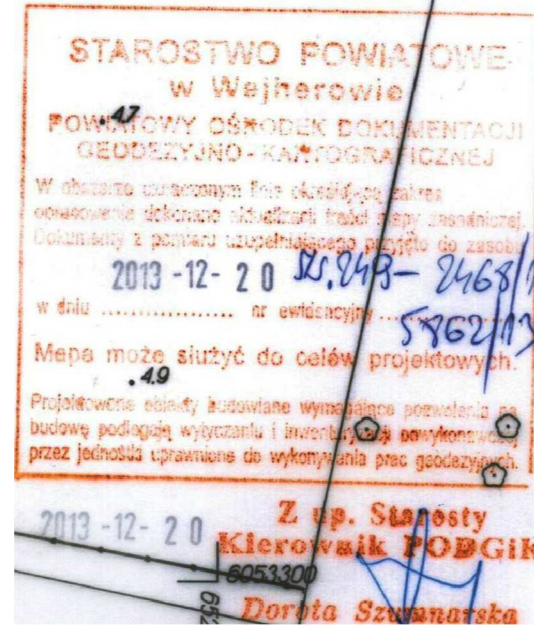 STAROSTWO POWIATOWE
w Wejherowie
.47
POWIATOWY OŚRODEK DOKUMENTACJI
GEODEZYJNO-KARTOGRAFICZNEJ
W obszarze oznaczonym linią określającą zakres
opracowania dokonano aktualizacji treści mapy zasadniczej.
Dokumenty z pomiaru uzupełniającego przyjęto do zasobu
2013 -12- 20
w dniu .................. nr ewidencyjny
5862/13
Mapa może służyć do celów projektowych.
.49
Projektowane obiekty budowlane wymagające pozwolenia na
budowę podlegają wytyczaniu i inwentaryzacji powykonawczej
przez jednostki uprawnione do wykonywania prac geodezyjnych.
2013 -12- 20
Z up. Starosty
Kierownik PODGiK
6053300
652
Dorota